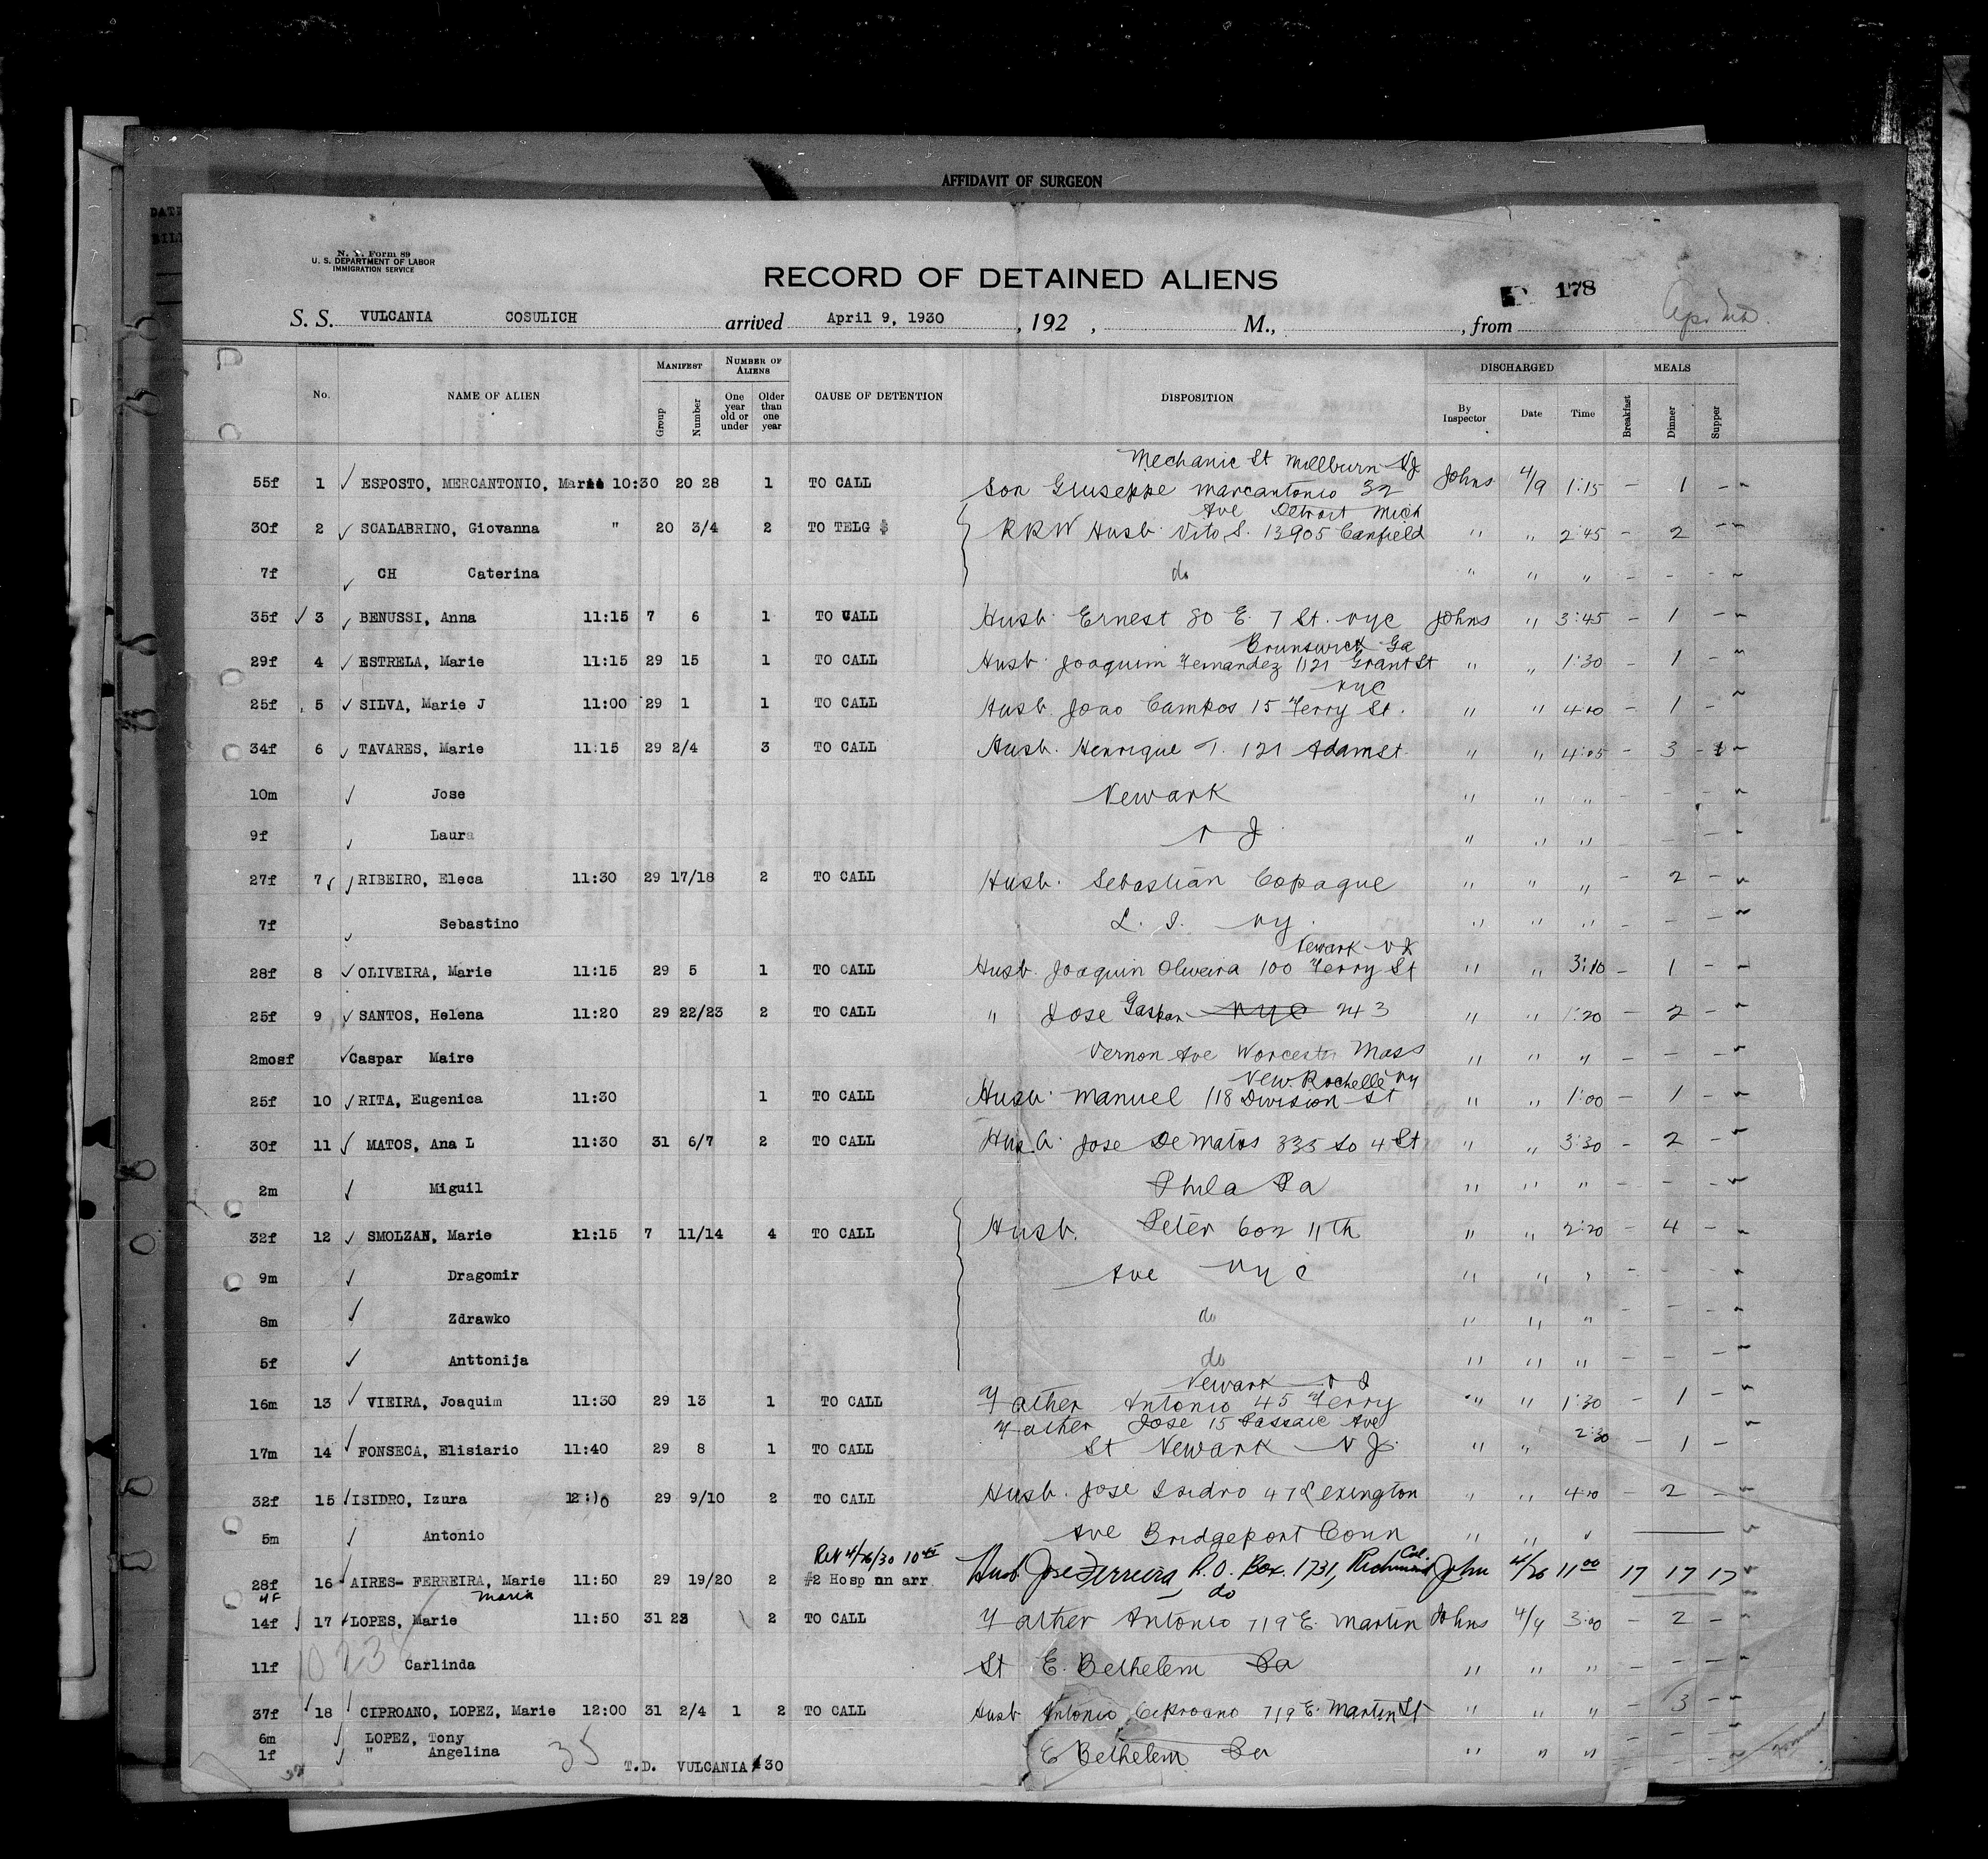 AFFIDAVIT OF SURGEON
DATE
BILL
N. Y. Form 89
U. S. DEPARTMENT OF LABOR
IMMIGRATION SERVICE
RECORD OF DETAINED ALIENS
178
S. S. VULCANIA COSULICH arrived April 9, 1930, 192 , M., , from
No. NAME OF ALIEN MANIFEST Group Number NUMBER OF ALIENS One year old or under Older than one year CAUSE OF DETENTION DISPOSITION DISCHARGED By Inspector Date Time MEALS Breakfast Dinner Supper
Mechanic St Millburn NJ
55f 1 ✓ ESPOSTO, MERCANTONIO, Marie 10:30 20 28 1 TO CALL Son Giuseppe Marcantonio 32 Johns 4/9 1:15 - 1 -
Ave Detroit Mich
30f 2 ✓ SCALABRINO, Giovanna " 20 3/4 2 TO TELG $ RRW Husb Vito S. 13905 Canfield " " 2:45 - 2 -
7f ✓ CH Caterina do " " " - - -
35f ✓ 3 ✓ BENUSSI, Anna 11:15 7 6 1 TO CALL Husb. Ernest 80 E. 7 St. NYC Johns " 3:45 - 1 -
Brunswick Ga
29f 4 ✓ ESTRELA, Marie 11:15 29 15 1 TO CALL Husb. Joaquim Fernandez 1121 Grant St " " 1:30 - 1 -
NYC
25f 5 ✓ SILVA, Marie J 11:00 29 1 1 TO CALL Husb. Joao Campos 15 Ferry St. " " 4:00 - 1 -
34f 6 ✓ TAVARES, Marie 11:15 29 2/4 3 TO CALL Husb. Henrique T. 121 Adam St. " " 4:05 - 3 -
10m ✓ Jose Newark " " " - - -
9f ✓ Laura N J " " " - - -
27f 7 ✓ RIBEIRO, Eleca 11:30 29 17/18 2 TO CALL Husb. Sebastian Copague " " " - 2 -
7f ✓ Sebastino L. I. NY. " " " - - -
Newark NJ
28f 8 ✓ OLIVEIRA, Marie 11:15 29 5 1 TO CALL Husb. Joaquin Oliveira 100 Ferry St " " 3:10 - 1 -
25f 9 ✓ SANTOS, Helena 11:20 29 22/23 2 TO CALL " Jose Gaspar NYC 243 " " 1:20 - 2 -
2mosf ✓ Caspar Maire Vernon Ave Worcester Mass " " " - - -
New Rochelle NY
25f 10 ✓ RITA, Eugenica 11:30 1 TO CALL Husb. Manuel 118 Division St " " 1:00 - 1 -
30f 11 ✓ MATOS, Ana L 11:30 31 6/7 2 TO CALL Husb. Jose De Matos 335 So 4 St " " 3:30 - 2 -
2m ✓ Miguil Phila Pa " " " - - -
32f 12 ✓ SMOLZAN, Marie 11:15 7 11/14 4 TO CALL Husb. Peter 602 11th " " 2:20 - 4 -
9m ✓ Dragomir Ave NYC " " " - - -
8m ✓ Zdrawko do " " " - - -
5f ✓ Anttonija do " " " - - -
Newark N J
16m 13 ✓ VIEIRA, Joaquim 11:30 29 13 1 TO CALL Father Antonio 45 Ferry " " 1:30 - 1 -
Father Jose 15 Passaic Ave
17m 14 ✓ FONSECA, Elisiario 11:40 29 8 1 TO CALL St Newark N J. " " 2:30 - 1 -
32f 15 ✓ ISIDRO, Izura 12:10 29 9/10 2 TO CALL Husb. Jose Isidro 47 Lexington " " 4:00 - 2 -
5m ✓ Antonio Ave Bridgeport Conn " " "
Rel 4/26/30 10
28f 16 ✓ AIRES- FERREIRA, Marie 11:50 29 19/20 2 #2 Hosp nn arr Husb Jose Ferreira, P.O. Box. 1731, Richmond Cal. John 4/26 11 00 17 17 17
4f Maria do
14f 17 ✓ LOPES, Marie 11:50 31 23 2 TO CALL Father Antonio 719 E. Martin Johns 4/9 3:00 - 2 -
11f Carlinda St E. Bethelem Pa " " " - - -
37f ✓ 18 CIPROANO, LOPEZ, Marie 12:00 31 2/4 1 2 TO CALL Husb Antonio Ciproano 719 E. Martin St " " " - 3 -
6m ✓ LOPEZ, Tony
1f ✓ " Angelina E Bethelem Pa " " " - - -
35
T.D. VULCANIA 30